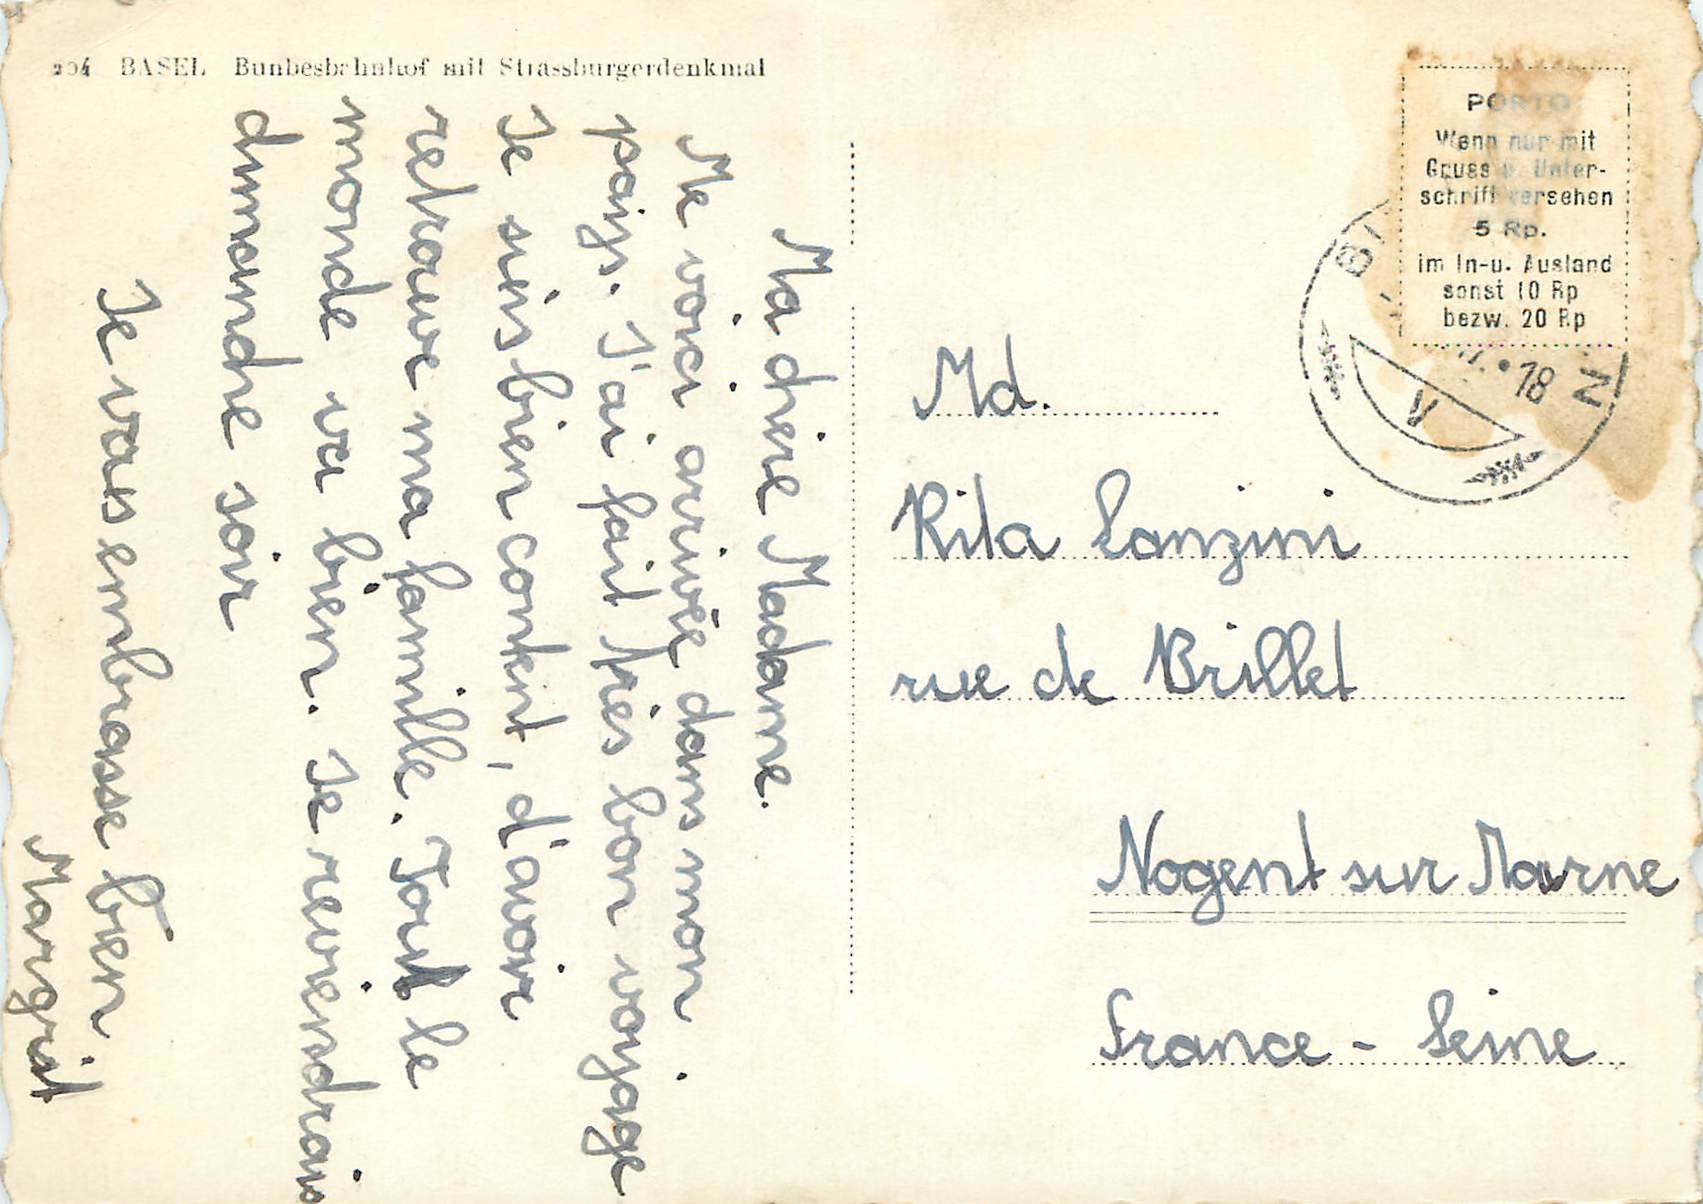 204 BASEL Bundesbahnhof mit Strassburgerdenkmal
Ma chere Madame.
Me voici arrivée dans mon
pays. J'ai fait très bon voyage
Je suis bien content, d'avoir
retrouve ma famille. Tout le
monde va bien. Je reviendrais
dimanche soir
Je vais embrasse bien
Margrit
PORTO
Wenn nur mit
Gruss u. Unter-
schrift versehen
5 Rp.
im In-u. Ausland
sonst 10 Rp
bezw. 20 Rp
18
V
Md.
Rita Lanzini
rue de Brillet
Nogent sur Marne
France - Seine